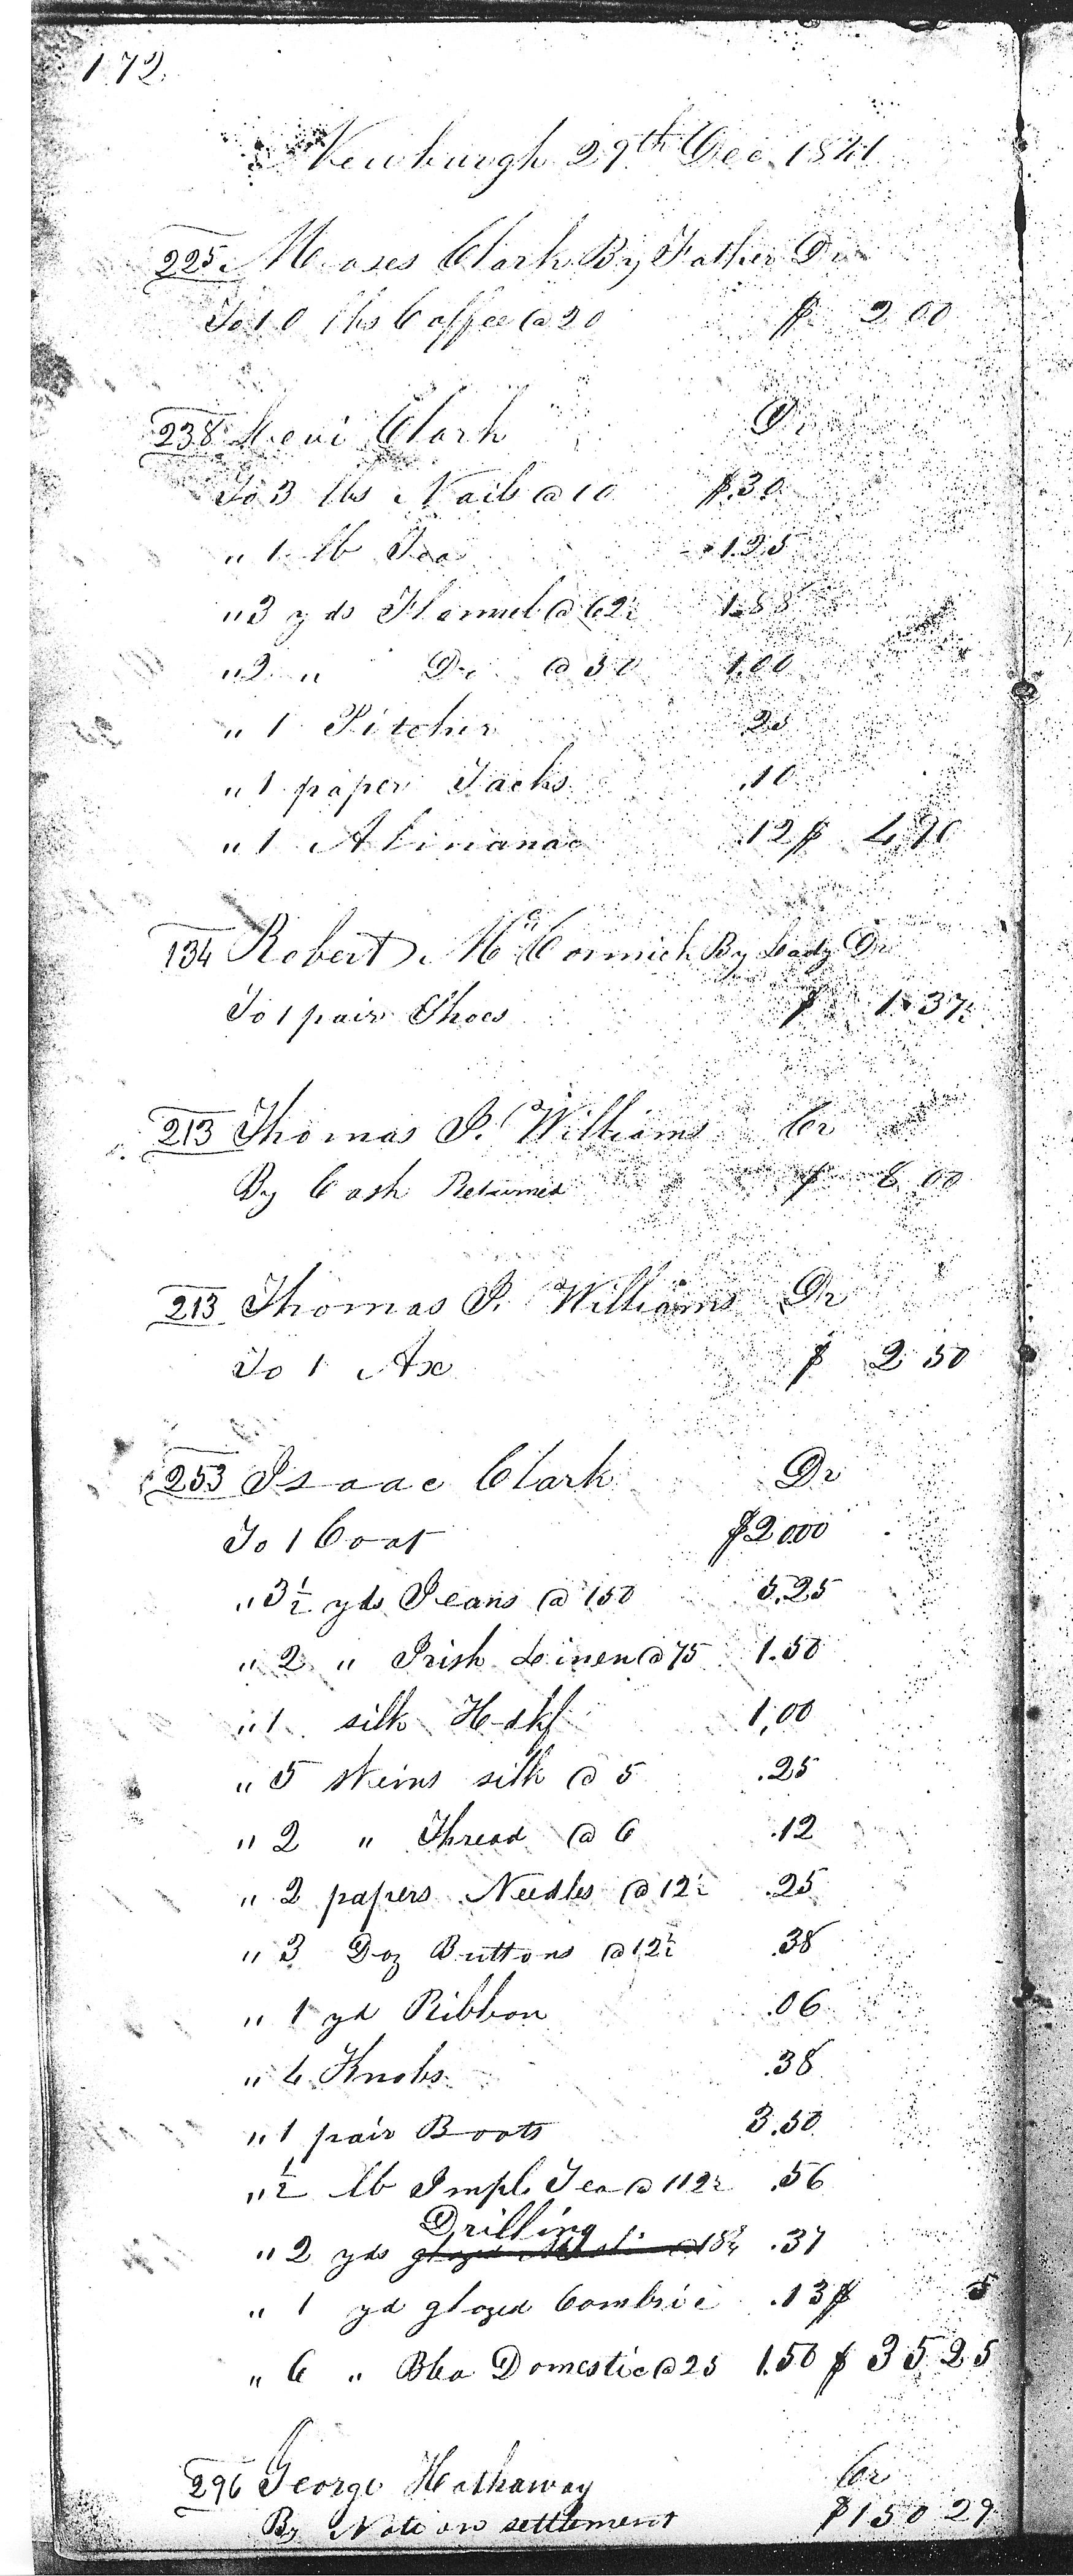 172.
Newburgh 29th Dec. 1841
225. Moses Clark By Father Dr
To 10 lbs Coffee @ 20 $ 2 00
238 Levi Clark Dr
To 3 lbs Nails @ 10 $.30
" 1 lb Tea 1.25
" 3 yds Flannel @ 62½ 1.88
" 2 " Do @ 50 1.00
" 1 Pitcher 25
" 1 paper Tacks .10
" 1 Almanac .12 $ 4.90
134 Robert McCormick By Lady Dr
To 1 pair Shoes $ 1.37½
213 Thomas P. Williams Cr
By Cash Returned $ 00
213 Thomas P. Williams Dr
To 1 Ax $ 2 50
253 Isaac Clark Dr
To 1 Coat $20.00
" 3½ yds Jeans @ 150 5.25
" 2 " Irish Linen @ 75 1.50
" 1 silk Hdkf 1,00
" 5 skeins silk @ 5 .25
" 2 " Thread @ 6 .12
" 2 papers Needles @ 12½ .25
" 3 Doz Buttons @ 12½ .38
" 1 yd Ribbon .06
" 6 Knobs .38
" 1 pair Boots 3.50
" ½ lb Impl. Tea @ 112½ .56
Drilling
" 2 yds glazed @ 18¾ .37
" 1 yd glazed Cambric .13 $
" 6 " Blea Domestic @ 25 1.50 $ 35 25
296 George Hathaway Cr
By Note on settlement $150 29